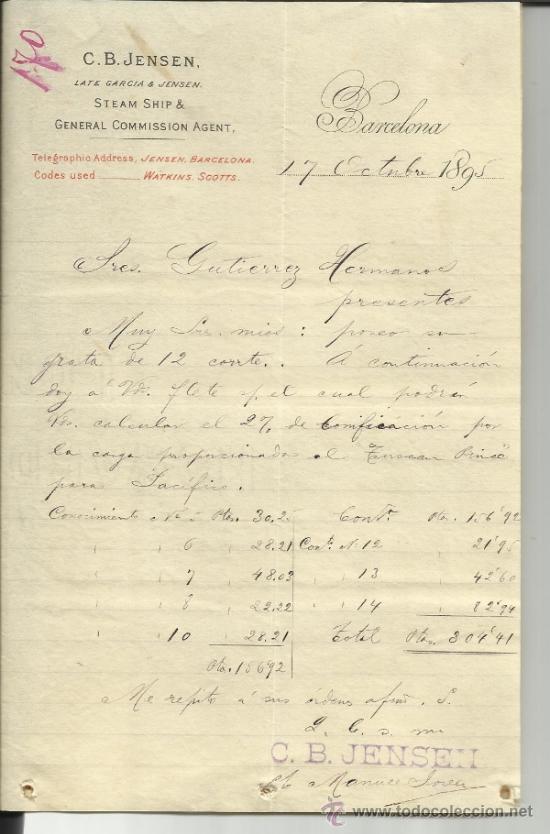 170
C. B. JENSEN,
LATE GARCIA & JENSEN.
STEAM SHIP &
GENERAL COMMISSION AGENT,
Telegraphic Address, JENSEN, BARCELONA.
Codes used WATKINS. SCOTTS.
Barcelona
17 Octubre 1895
Sres. Gutierrez Hermanos
presentes
Muy Sres. mios: poseo su
grata de 12 corrte.. A continuación
doy á Vds. flete s/ el cual podrán
Vds. calcular el 2% de bonificación por
la carga proporcionada al "Tuscan Prince"
para Pacífico.
Conocimiento No 5 Ptas. 30.25 Contn. Pta. 156'92
" " 6 " 28.21 Con. N. 12 " 21'95
" " 7 " 48.03 " 13 " 42'60
" " 8 " 22.22 " 14 " 82'94
" " 10 " 28.21 Total Ptas. 304'41
Pta. 156.92
Me repito á sus órdenes afmo. S.
Q. B. s. m.
C. B. JENSEN
Manuel
www.todocoleccion.net